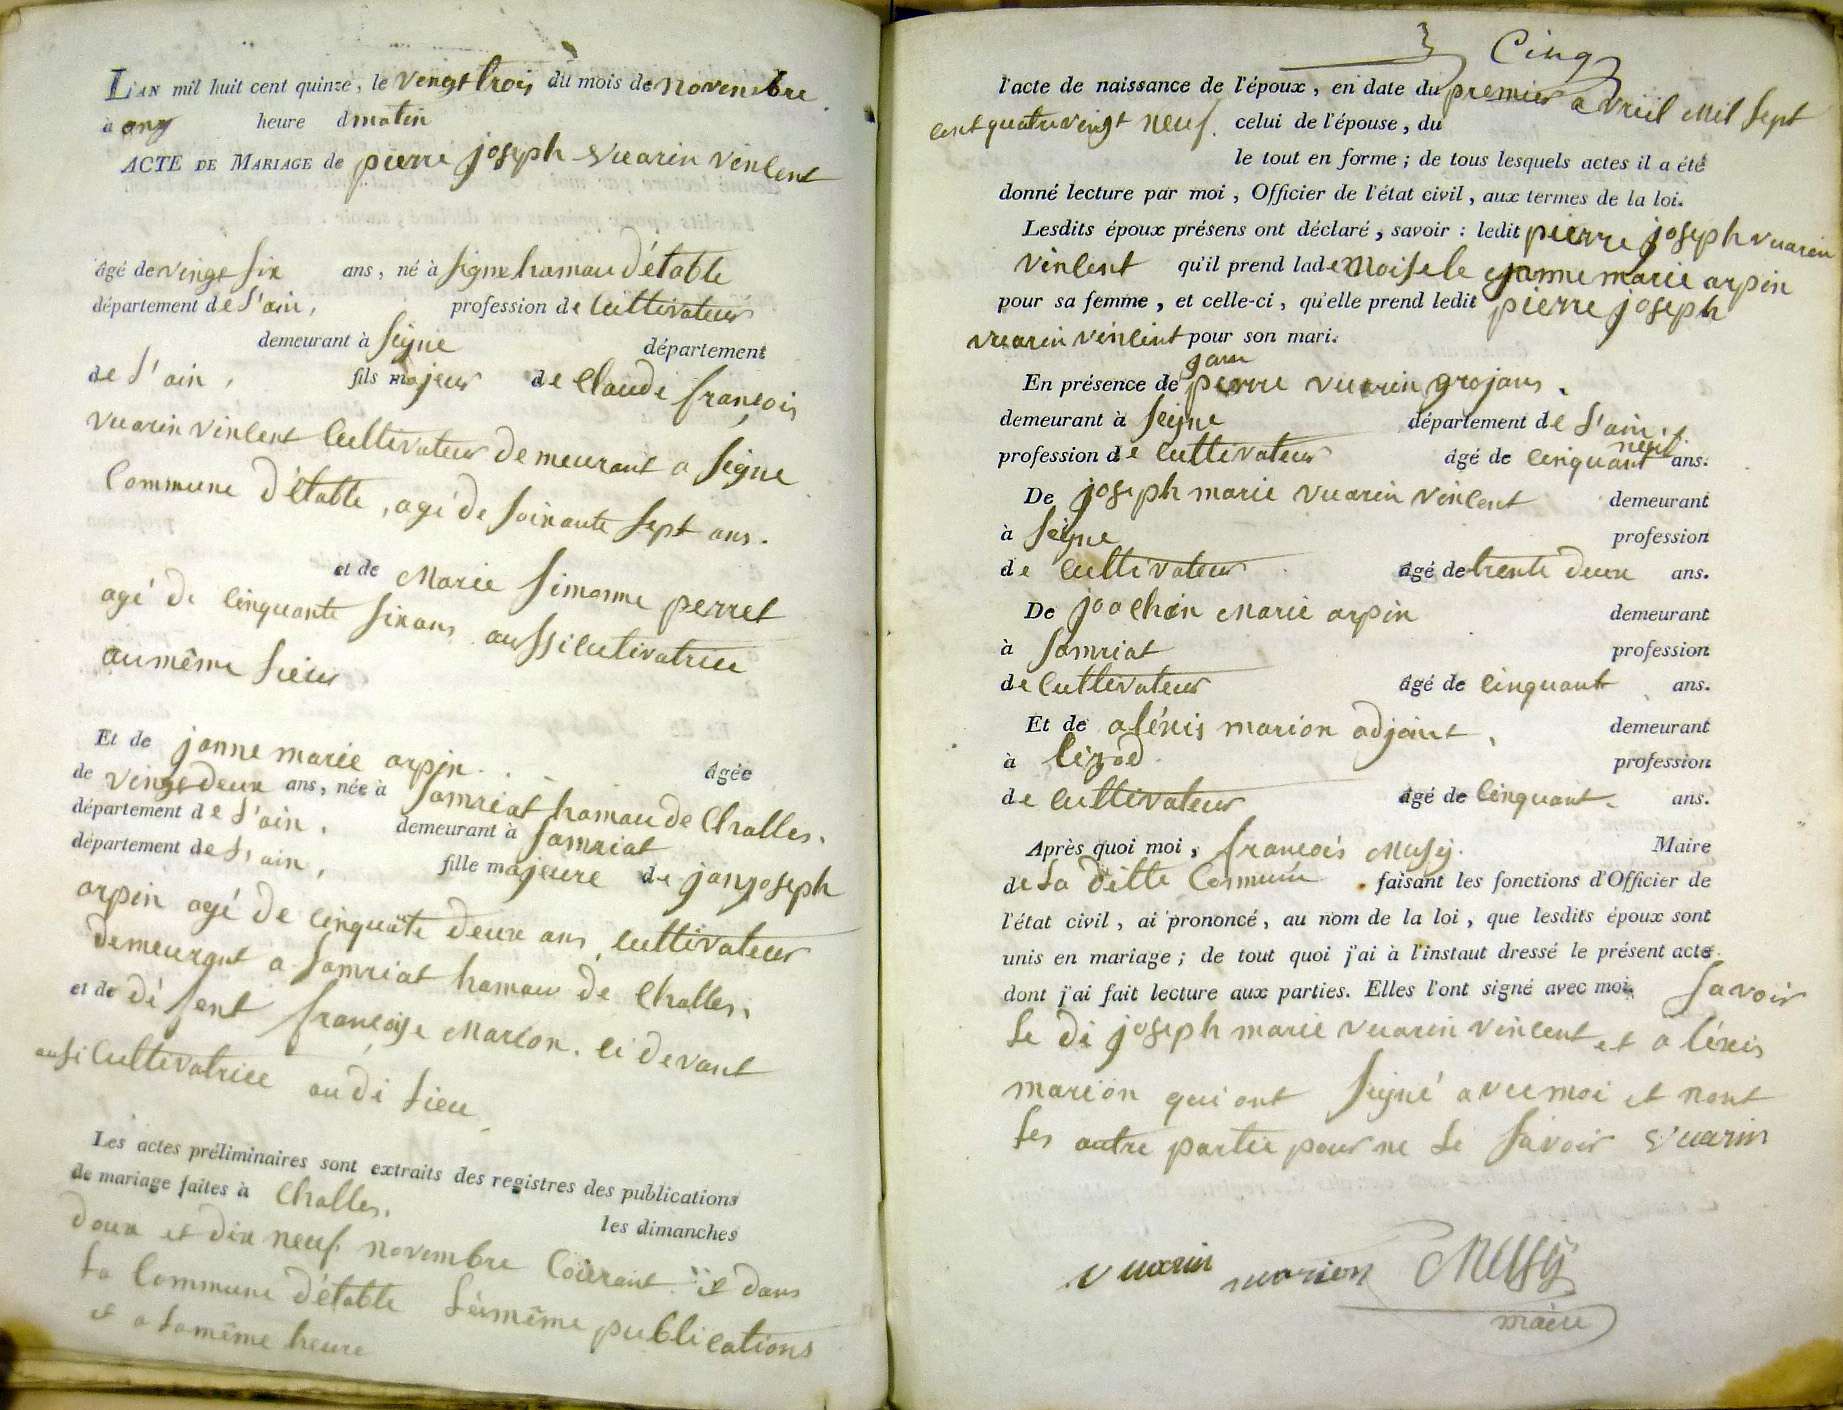 L'AN mil huit cent quinze, le vengt trois du mois de novembre
à onz heure d matin
ACTE DE MARIAGE de pierre joseph vuarin vincent
âgé de vingt six ans, né à signe hamau d'étable
département de l'ain, profession de Cultivateur
demeurant à signe département
de l'ain, fils majeur de Claude françois
vuarin vincent Cultivateur demeurant a signe
Commune d'étable, agé de soixante sept ans.
et de Marie simonne perret
agé de cinquante six ans aussi cutivatrice
au même lieu
Et de janne marie arpin âgée
de vingt deux ans, née à samriat hamau de Challes,
département de l'ain, demeurant à samriat
département de l'ain, fille majeure de jan joseph
arpin agé de cinquate deux ans, Cultivateur
demeurant a samriat hamau de Challes,
et de dé fent françoise Marion. ci devant
ausi Cultivatrice au di lieu
Les actes préliminaires sont extraits des registres des publications
de mariage faites à Challes, les dimanches
doux et dix neuf novembre Courant et dans
la Commune d'étable les même publications
et a la même heure
3 Cinq
l'acte de naissance de l'époux, en date du premier avriil Mil sept
cent quatre vingt neuf. celui de l'épouse, du
le tout en forme; de tous lesquels actes il a été
donné lecture par moi, Officier de l'état civil, aux termes de la loi.
Lesdits époux présens ont déclaré, savoir : ledit pierre joseph vuarin
vincent qu'il prend lademoisele janne marie arpin
pour sa femme, et celle-ci, qu'elle prend ledit pierre joseph
vuarin vincint pour son mari.
jan
En présence de pierre vuarin grojans.
demeurant à signe département de l'ain,
profession de cultivateur âgé de cinquant neuf ans.
De joseph marie vuarin vincent demeurant
à signe profession
de cultivateur âgé de trente deux ans.
De joachin Marie arpin demeurant
à samriat profession
de Cultivateur âgé de cinquant ans.
Et de aléxis marion adjoint, demeurant
à lizod profession
de cultivateur âgé de Cinquant ans.
Après quoi moi, françois Mussy Maire
de la ditte Commune faisant les fonctions d'Officier de
l'état civil, ai prononcé, au nom de la loi, que lesdits époux sont
unis en mariage; de tout quoi j'ai à l'instant dressé le présent acte
dont j'ai fait lecture aux parties. Elles l'ont signé avec moi, savoir
le di joseph marie vuarin vincent et aléxis
marion qui ont signé avec moi et nont
les autre partie pour ne le savoir vuarin
vuarin marion Mussy
maire